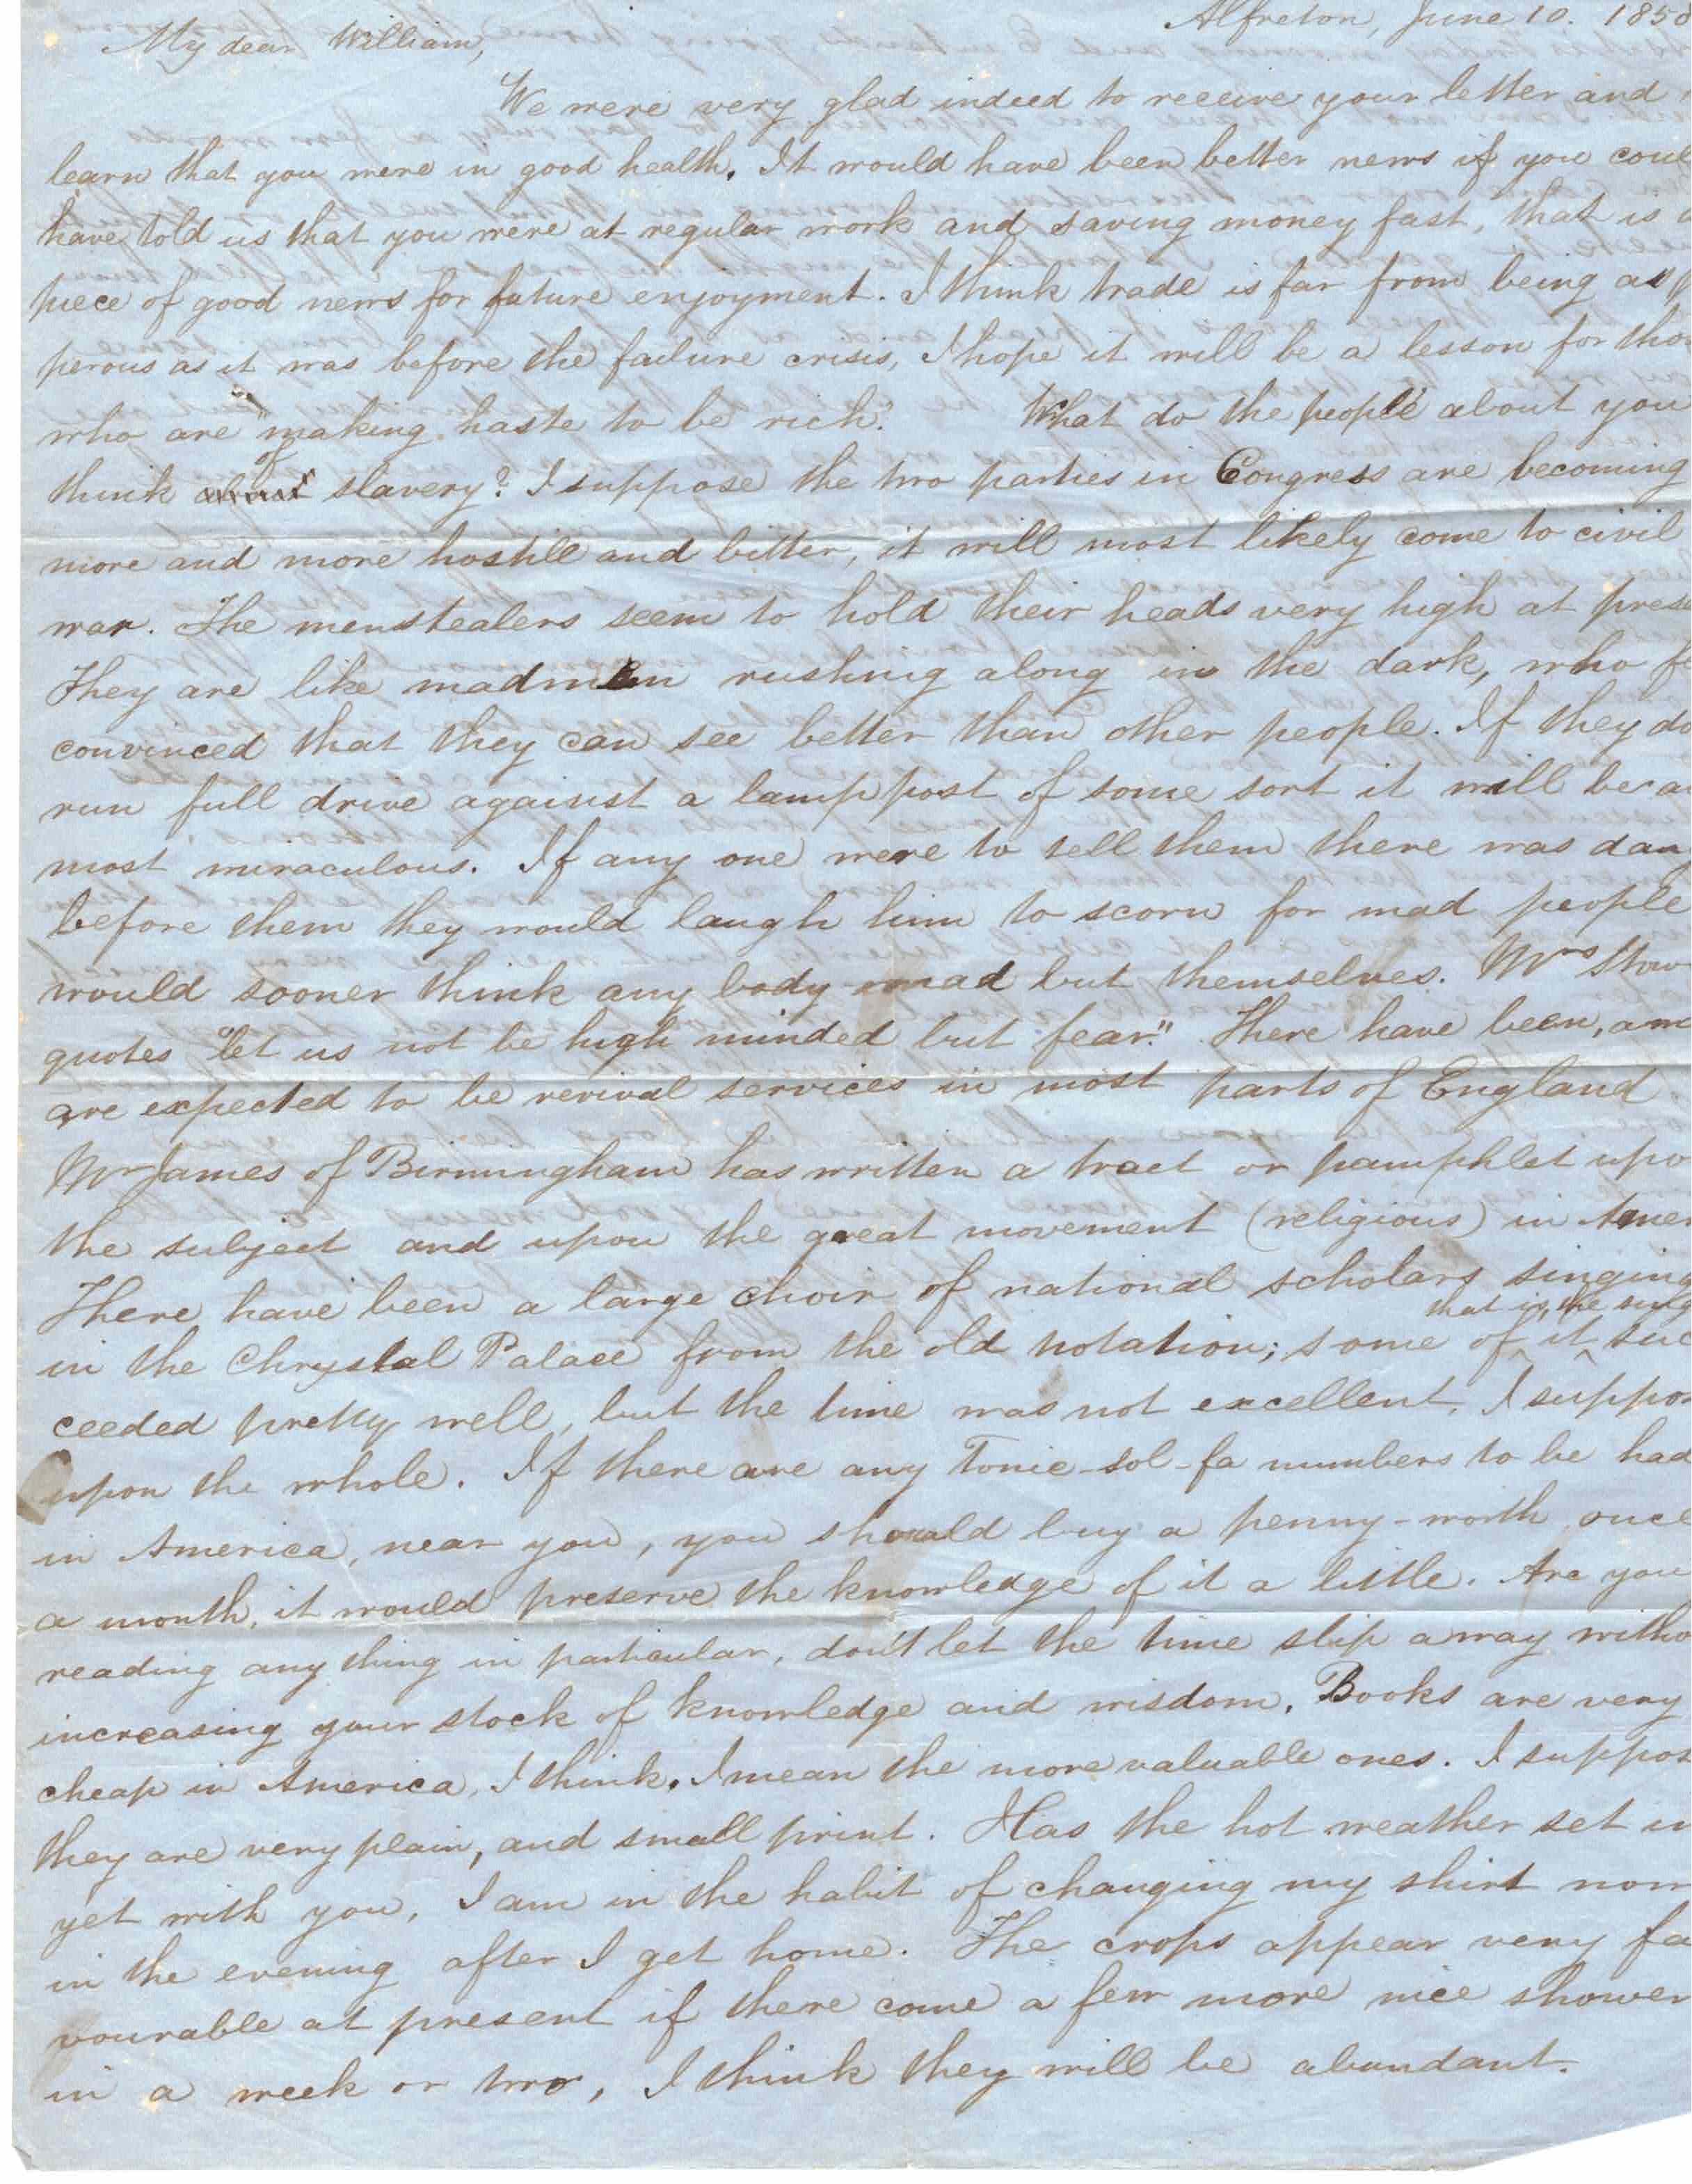 Alfreton, June 10. 1858
My dear William,
We were very glad indeed to receive your letter and
learn that you were in good health. It would have been better news if you coul
have told us that you were at regular work and saving money fast, that is a
piece of good news for future enjoyment. I think trade is far from being as p
perous as it was before the failure crisis, I hope it will be a lesson for tho
who are "making haste to be rich." What do the people about you
of
think about slavery? I suppose the two parties in Congress are becoming
more and more hostile and bitter, it will most likely come to civil
war. The menstealers seem to hold their heads very high at prese
They are like madmen rushing along in the dark, who f
convinced that they can see better than other people. If they do
run full drive against a lamp post of some sort it will be a
most miraculous. If any one were to tell them there was dan
before them they would laugh him to scorn for mad people
would sooner think any body mad but themselves. Mrs Stow
quotes "let us not be high minded but fear." There have been, an
are expected to be revival services in most parts of England
Mr James of Birmingham has written a tract or pamphlet upo
the subject and upon the great movement (religious) in Amer
There have been a large choir of national scholars singing
that is, the sing
in the Chrystal Palace from the old notation; some of it suc
ceeded pretty well, but the time was not excellent, I suppos
upon the whole. If there are any Tonic-sol-fa numbers to be had
in America, near you, you should buy a penny-worth once
a month, it would preserve the knowledge of it a little. Are you
reading any thing in particular, don't let the time slip away witho
increasing your stock of knowledge and wisdom. Books are very
cheap in America, I think. I mean the more valuable ones. I suppos
they are very plain, and small print. Has the hot weather set in
yet with you, I am in the habit of changing my shirt now
in the evening after I get home. The crops appear very fa
vourable at present if there come a few more nice shower
in a week or two, I think they will be abundant.